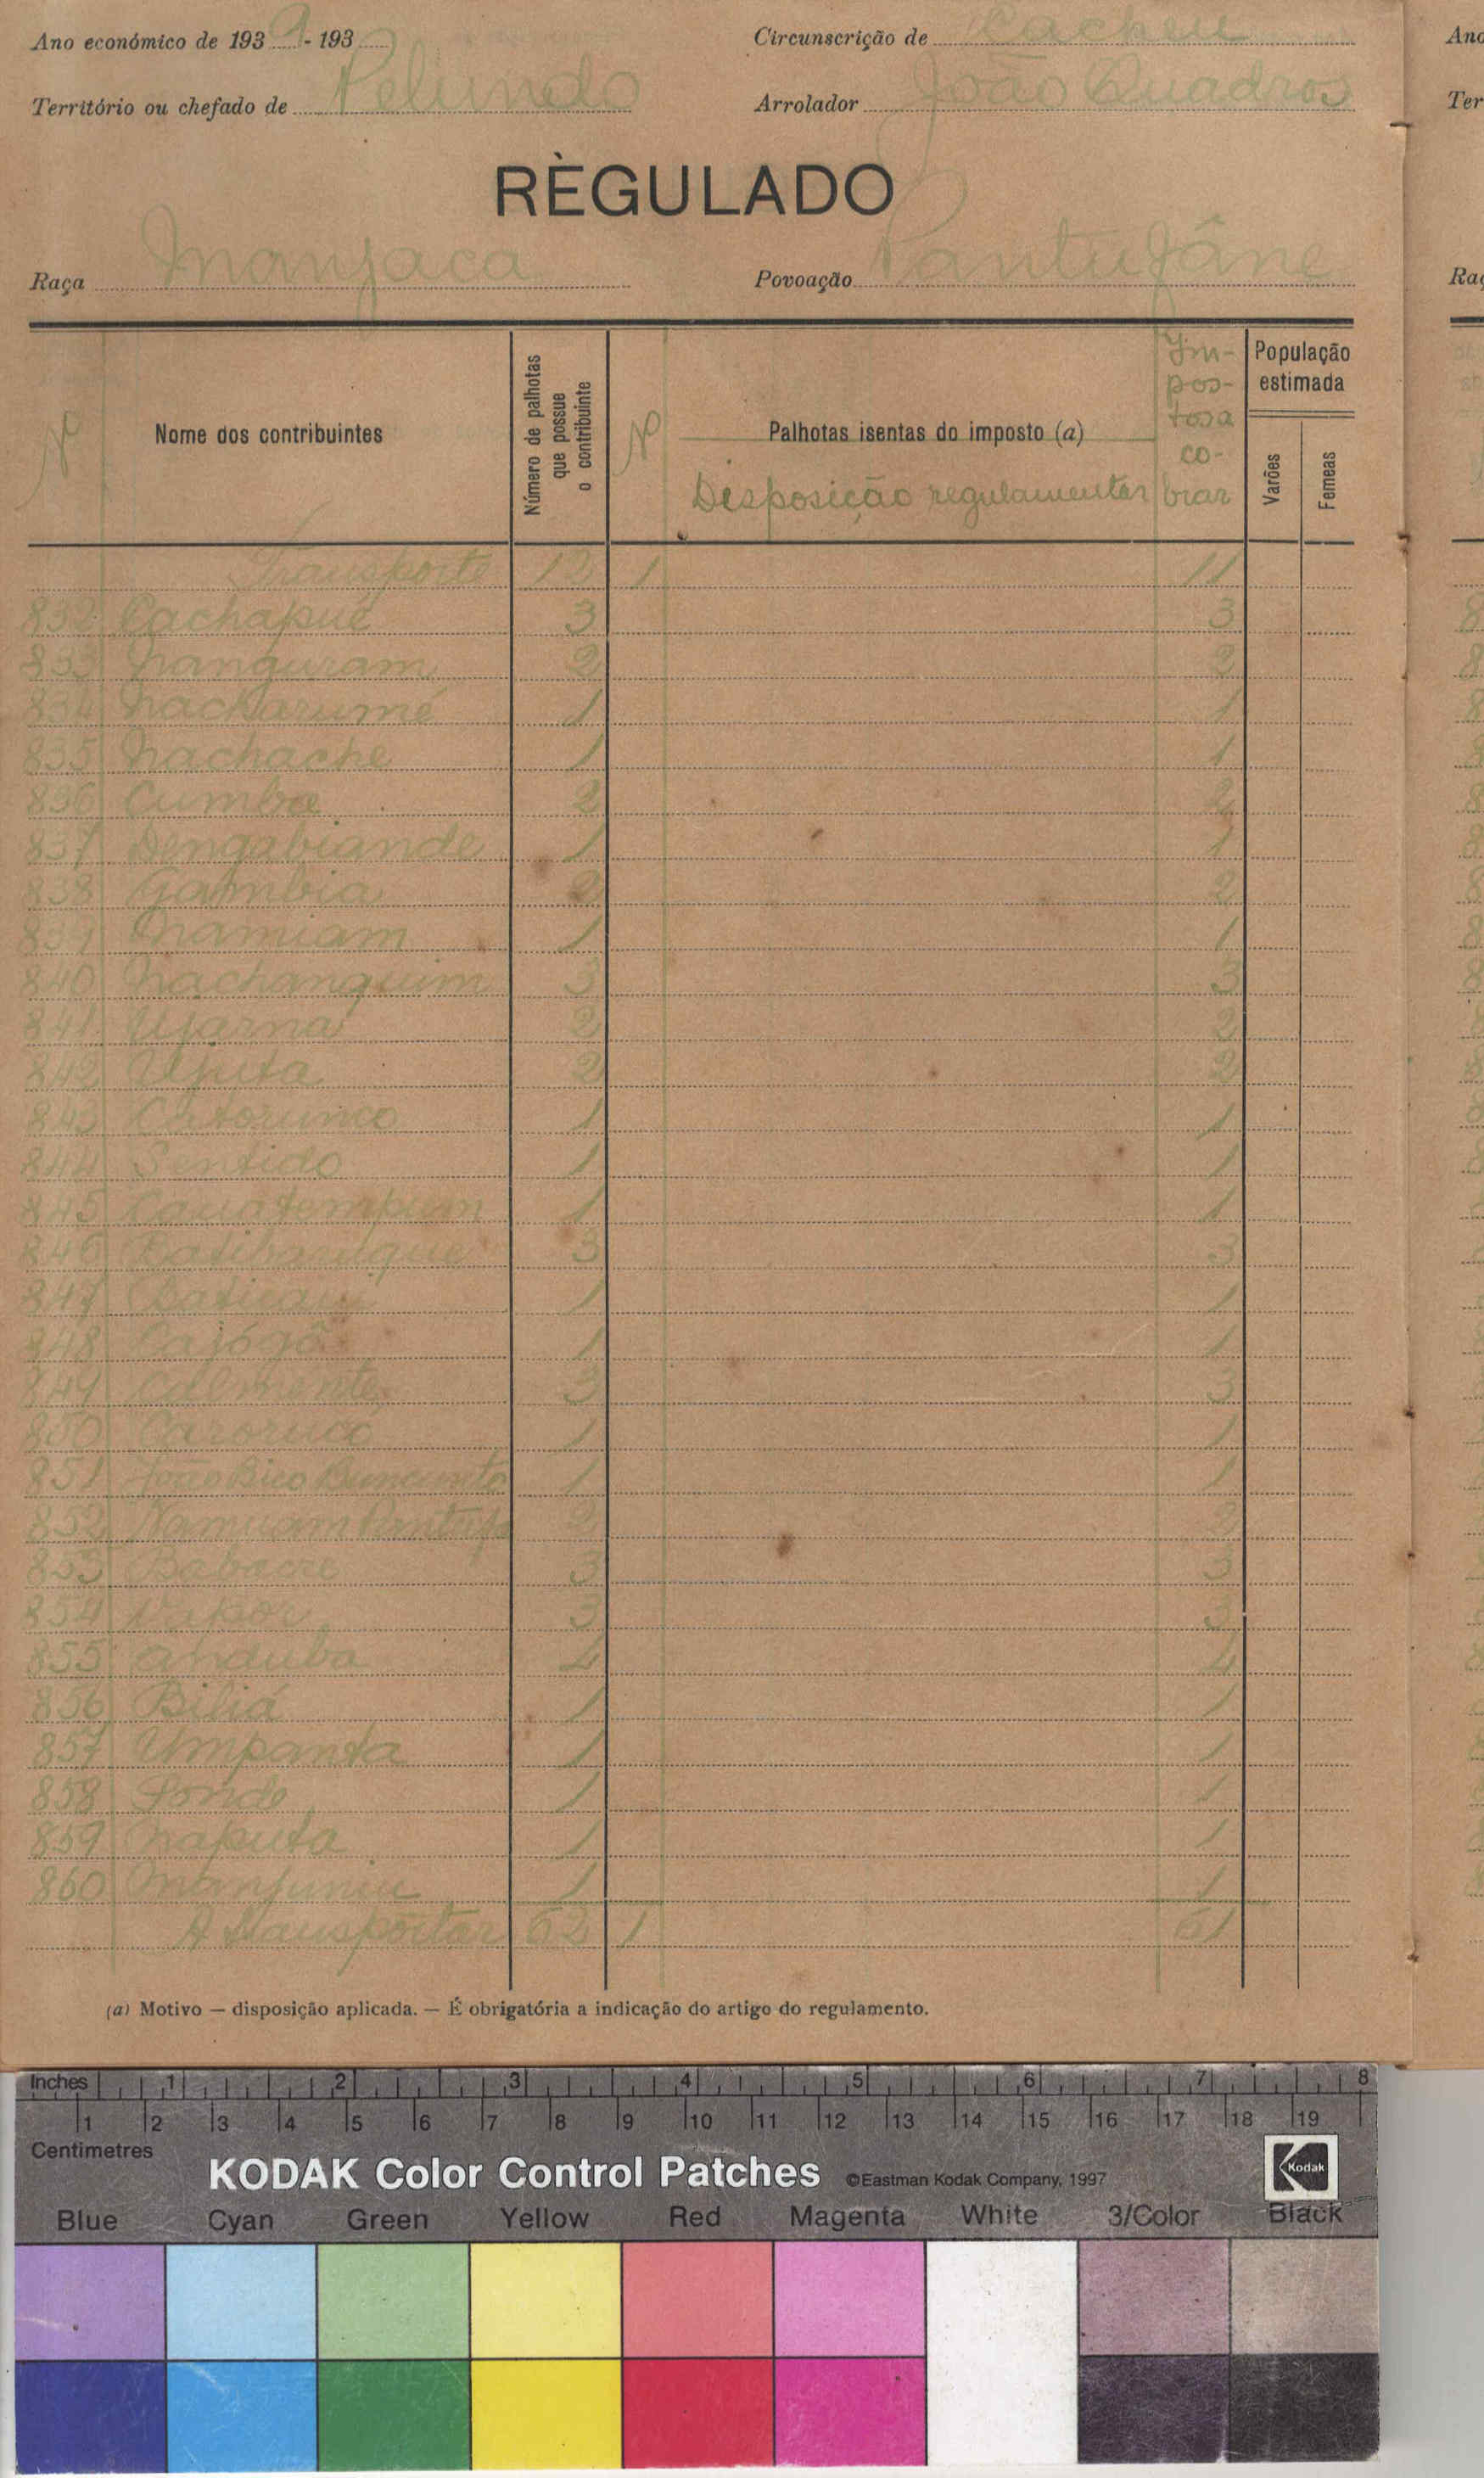 Ano económico de 1939 - 193
Circunscrição de Cacheu
Território ou chefado de Pelundo
Arrolador João Quadros
RÈGULADO
Raça Manjaca
Povoação Pantufâne
Nº
Nome dos contribuintes
Número de palhotas que possue o contribuinte
Nº
Palhotas isentas do imposto (a)
Disposição regulamentar
Im-
pos-
tos a
co-
brar
População estimada
Varões
Femeas
Transporte 12 1 11
832 Cachapué 3 3
833 Nanguram 2 2
834 Nacharumé 1 1
835 Nachache 1 1
836 Cumbre 2 2
837 Dengabiande 1 1
838 Gambia 2 2
839 Namuiam 1 1
840 Nachanquim 3 3
841 Ujarna 2 2
842 Uputa 2 2
843 1 1
844 Sentido 1 1
845 Cauatempum 1 1
846 3 3
847 1 1
848 Cajógó 1 1
849 3 3
850 Caroruco 1 1
851 João Bico 1 1
852 2 2
853 Babacre 3 3
854 Vapor 3 3
855 Anduba 4 4
856 Biliá 1 1
857 Umpanta 1 1
858 Ponde 1 1
859 Naputa 1 1
860 1 1
A transportar 62 1 61
(a) Motivo — disposição aplicada. — É obrigatória a indicação do artigo do regulamento.
Inches 1 2 3 4 5 6 7 8
1 2 3 4 5 6 7 8 9 10 11 12 13 14 15 16 17 18 19
Centimetres
KODAK Color Control Patches ©Eastman Kodak Company, 1997 Kodak
Blue Cyan Green Yellow Red Magenta White 3/Color Black